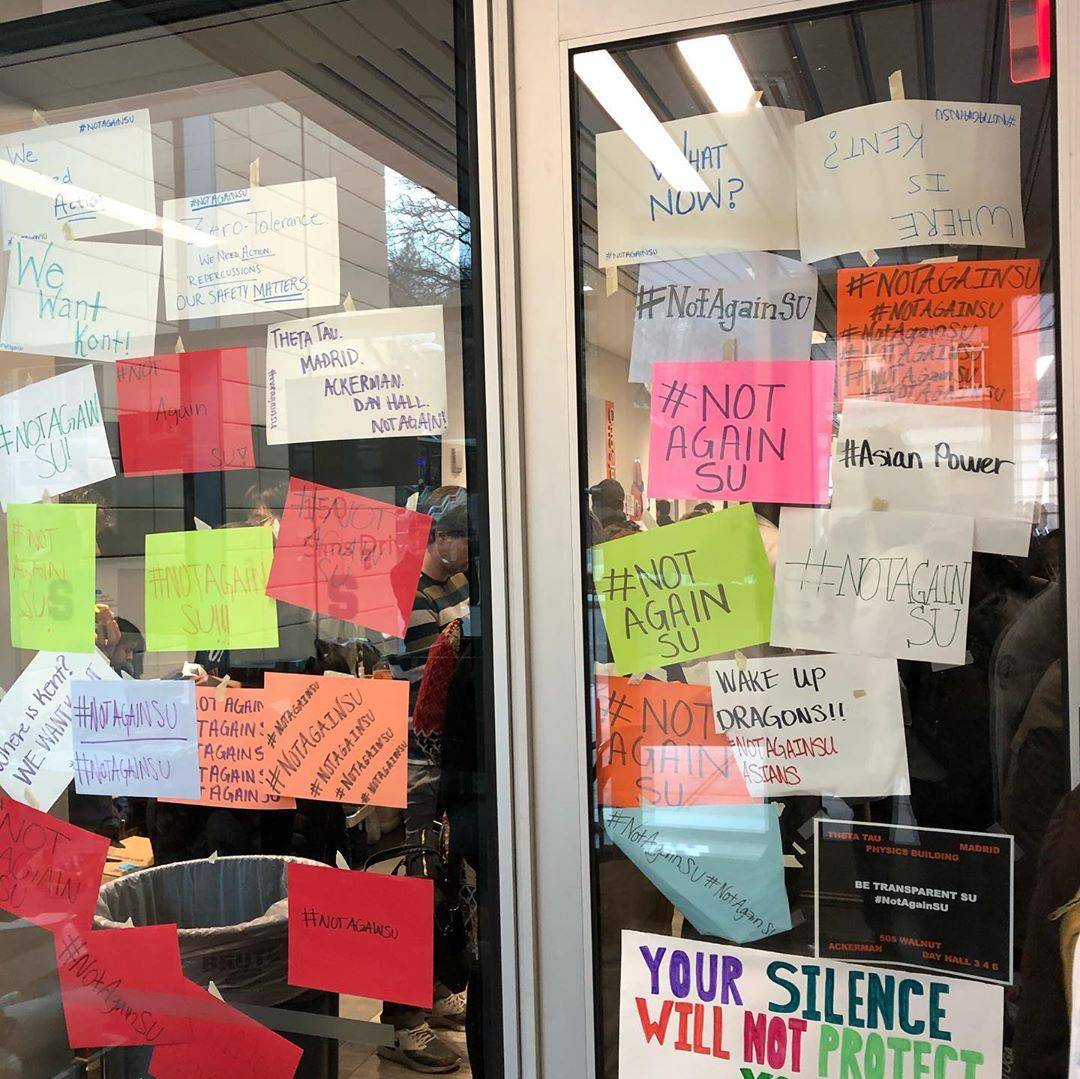 #NOTAGAINSU
We
Action
#NOTAGAINSU
Zero-Tolerance
WE NEED ACTION.
REPERCUSSIONS
OUR SAFETY MATTERS.
We
Want
Kent!
THETA TAU.
MADRID.
ACKERMAN.
DAY HALL.
NOT AGAIN!
#notagainsu
#NOTAGAIN
SU!
#NOT
Again
SU
#NOT
AGAIN
SU
#NOTAGAIN
SU!!!
S
Where is Kent?
WE WANT
#NOTAGAINSU
#NOTAGAINSU
OT AGAIN
TAGAIN
TAGAINS
TAGAIN
TAGAINSU
#NOTAGAINSU
#NOTAGAINSU
#NOTAGAINSU
#NOTAGAINSU
#NOTAGAINSU
NOT
AGAIN
SU
#NOTAGAINSU
#NotAgainSU
BRUTE
WHAT
NOW?
#NOTAGAINSU
WHERE
IS
KENT?
#NOTAGAINSU
#NotAgainSU
#NOTAGAINSU
#NOTAGAINSU
#NotAgainSU
#NOTAGAINSU
#NotAgainSU
#NOTAGAINSU
#NOT
AGAIN
SU
#Asian Power
#NOT
AGAIN
SU
#NOTAGAIN
SU
WAKE UP
DRAGONS!!
#NOTAGAINSU
ASIANS
#NOT
AGAIN
SU
#NotAgainSU #NotAgainSU
THETA TAU
MADRID
PHYSICS BUILDING
BE TRANSPARENT SU
#NotAgainSU
505 WALNUT
ACKERMAN
DAY HALL 3 4 6
YOUR SILENCE
WILL NOT PROTECT